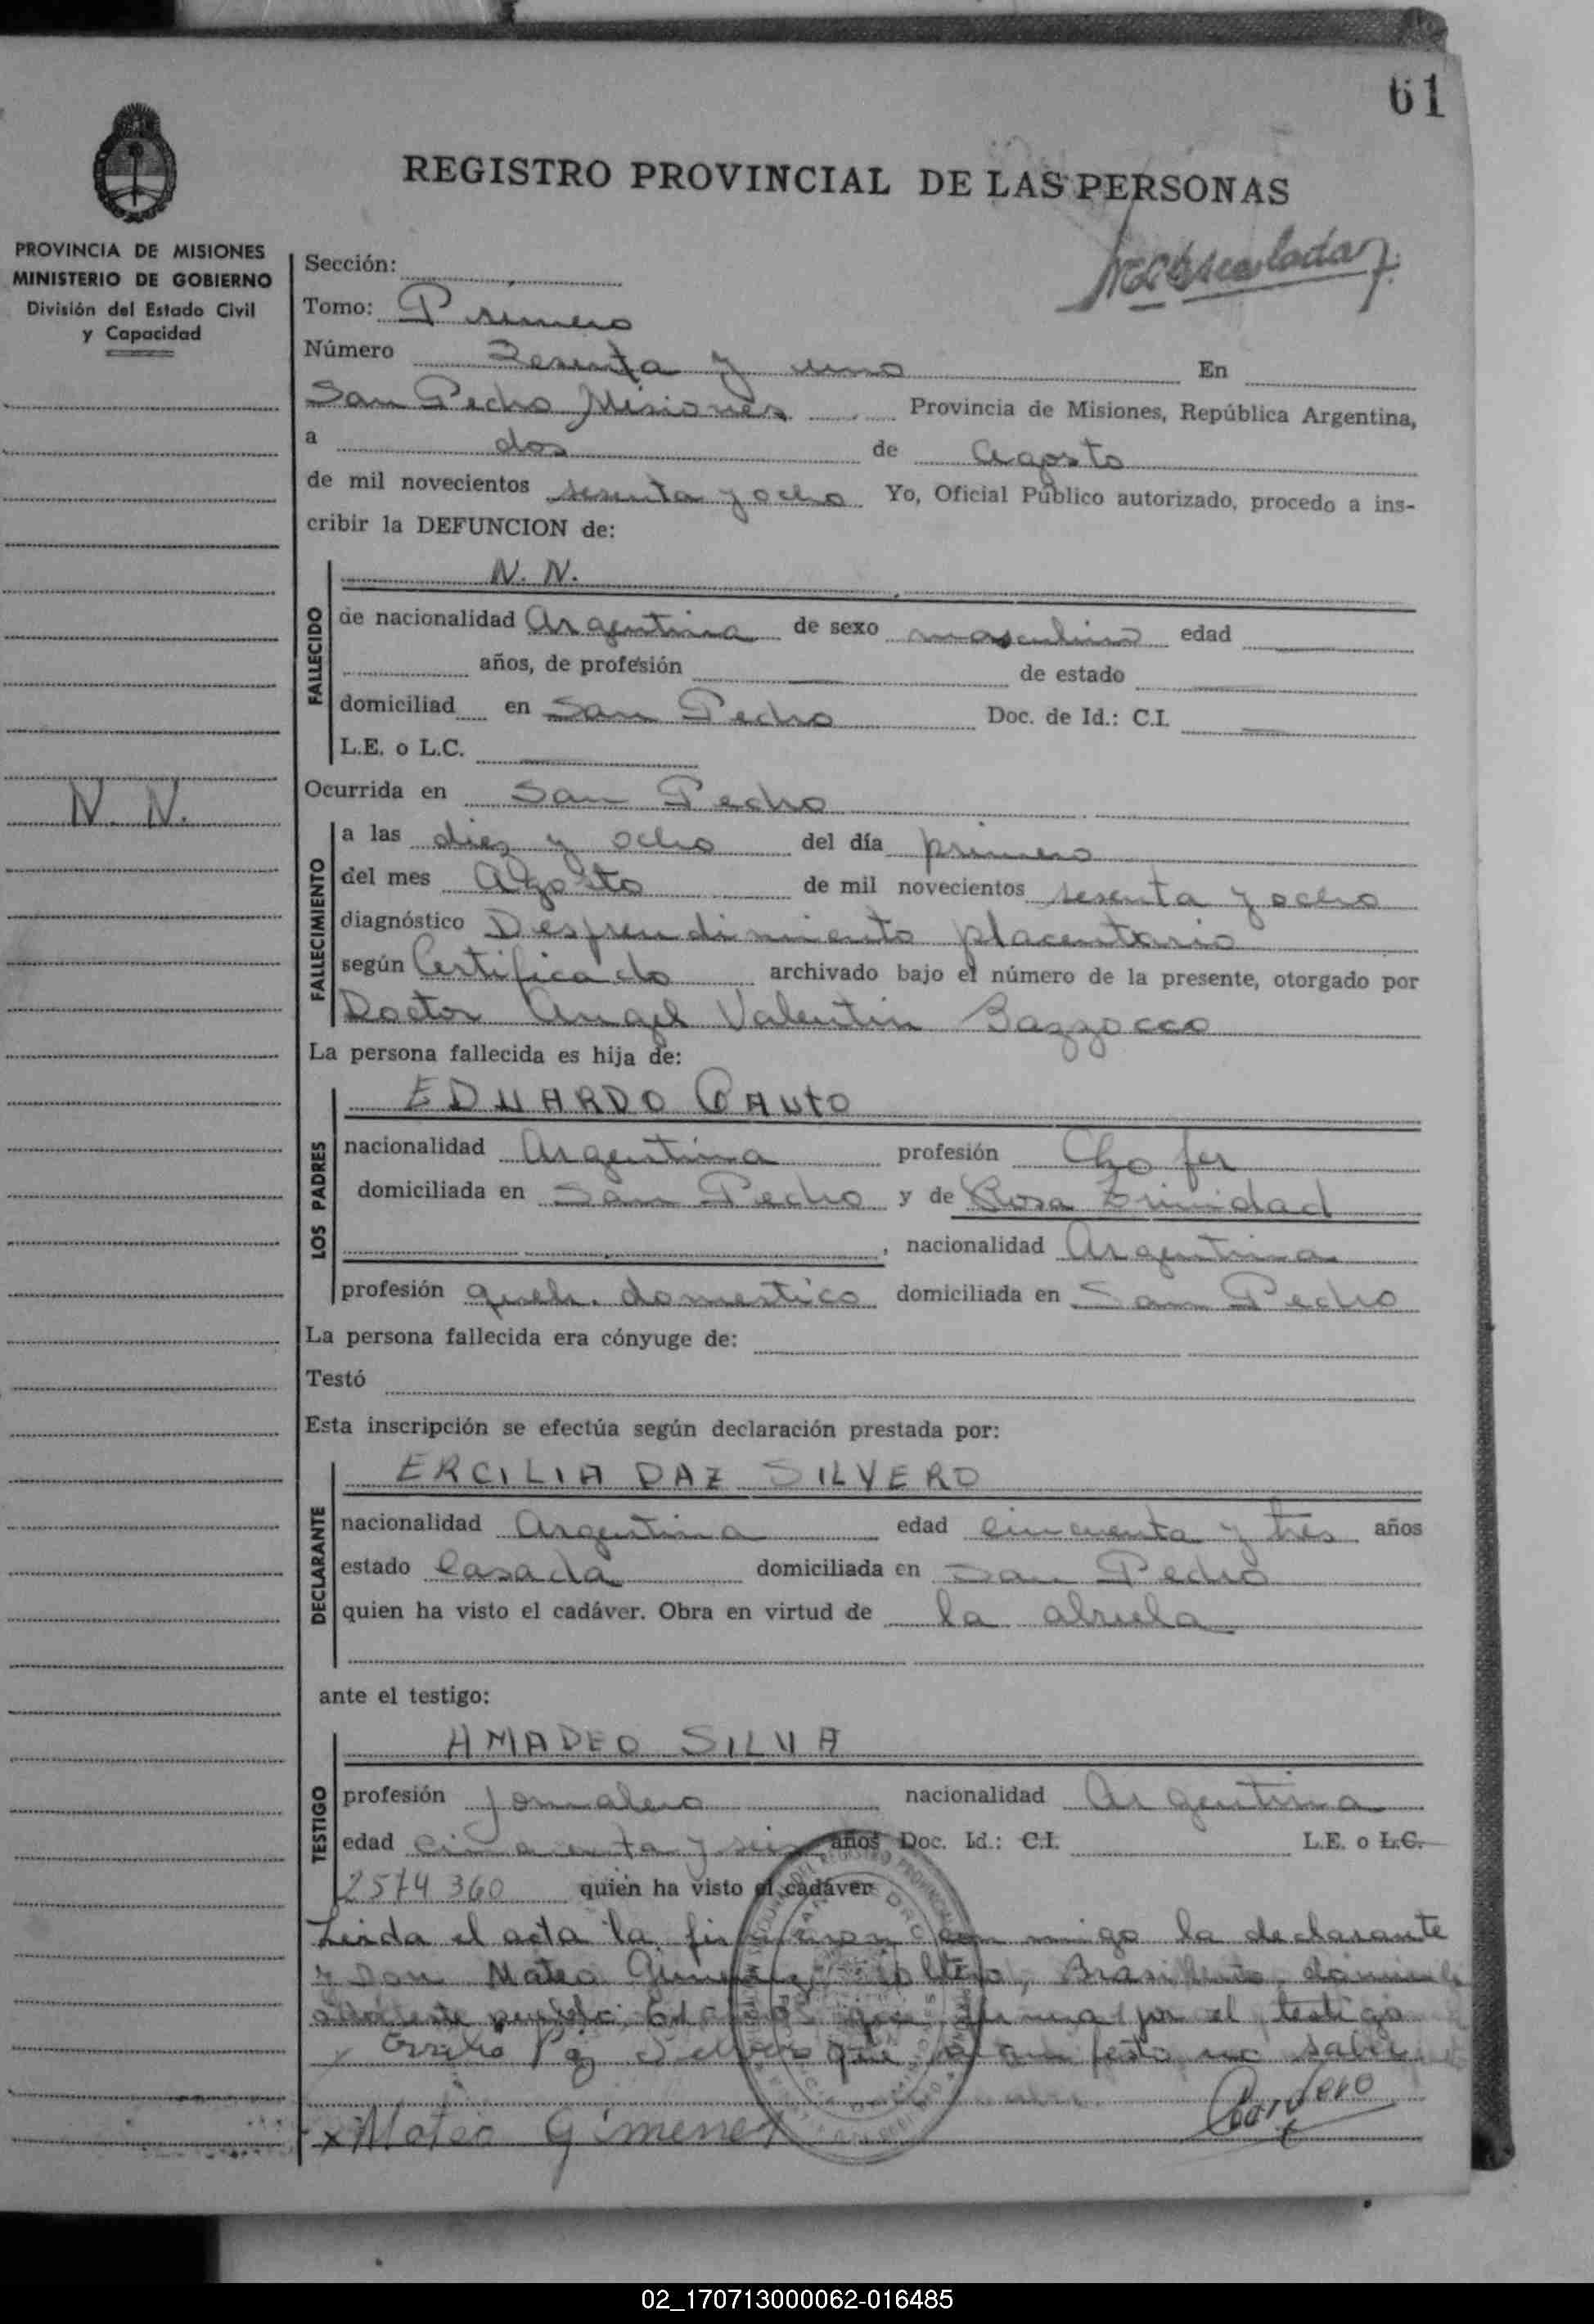 61
REGISTRO PROVINCIAL DE LAS PERSONAS
PROVINCIA DE MISIONES
MINISTERIO DE GOBIERNO
División del Estado Civil
y Capacidad
Sección:
Tomo: Primero
Número Sesenta y uno En
San Pedro Misiones Provincia de Misiones, República Argentina,
a dos de Agosto
de mil novecientos sesenta y ocho Yo, Oficial Público autorizado, procedo a ins-
cribir la DEFUNCION de:
N. N.
FALLECIDO
de nacionalidad Argentina de sexo masculino edad
años, de profesión de estado
domiciliad en San Pedro Doc. de Id.: C.I.
L.E. o L.C.
N. N.
Ocurrida en San Pedro
FALLECIMIENTO
a las diez y ocho del día primero
del mes Agosto de mil novecientos sesenta y ocho
diagnóstico Desprendimiento placentario
según Certificado archivado bajo el número de la presente, otorgado por
Doctor Angel Valentin Bazzocco
La persona fallecida es hija de:
LOS PADRES
EDUARDO CAUTO
nacionalidad Argentina profesión Chofer
domiciliada en San Pedro y de Rosa Trinidad
, nacionalidad Argentina
profesión queh. domestico domiciliada en San Pedro
La persona fallecida era cónyuge de:
Testó
Esta inscripción se efectúa según declaración prestada por:
DECLARANTE
ERCILIA PAZ SILVERO
nacionalidad Argentina edad cincuenta y tres años
estado Casada domiciliada en San Pedro
quien ha visto el cadáver. Obra en virtud de la abuela
ante el testigo:
TESTIGO
AMADEO SILVA
profesión Jornalero nacionalidad Argentina
edad cincuenta y seis años Doc. Id.: C.I. L.E. o L.C.
2574360 quien ha visto el cadáver
Leida el acta la firmaron con migo la declarante
y Don Mateo Gimenez, soltero, Brasilero,
que firma por el testigo
que no saber
x Mateo Gimenez
02_170713000062-016485